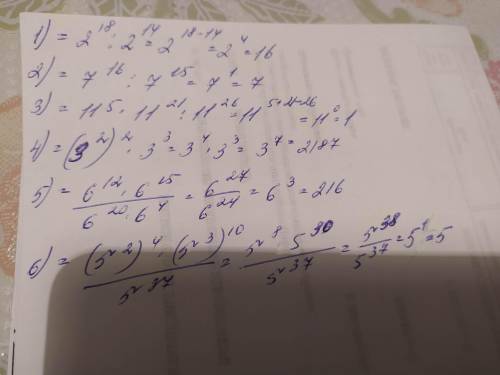 1) = 2^18 : 2^14 = 2^18-14 = 2^4 = 16
2) = 7^16 : 7^15 = 7^1 = 7
3) = 11^5 · 11^21 : 11^26 = 11^5+21-26 = 11^0 = 1
4) = (3^2)^2 · 3^3 = 3^4 · 3^3 = 3^7 = 2187
5) = 6^12 · 6^15 / 6^20 · 6^4 = 6^27 / 6^24 = 6^3 = 216
6) = (5^2)^4 · (5^3)^10 / 5^37 = 5^8 · 5^30 / 5^37 = 5^38 / 5^37 = 5^1 = 5